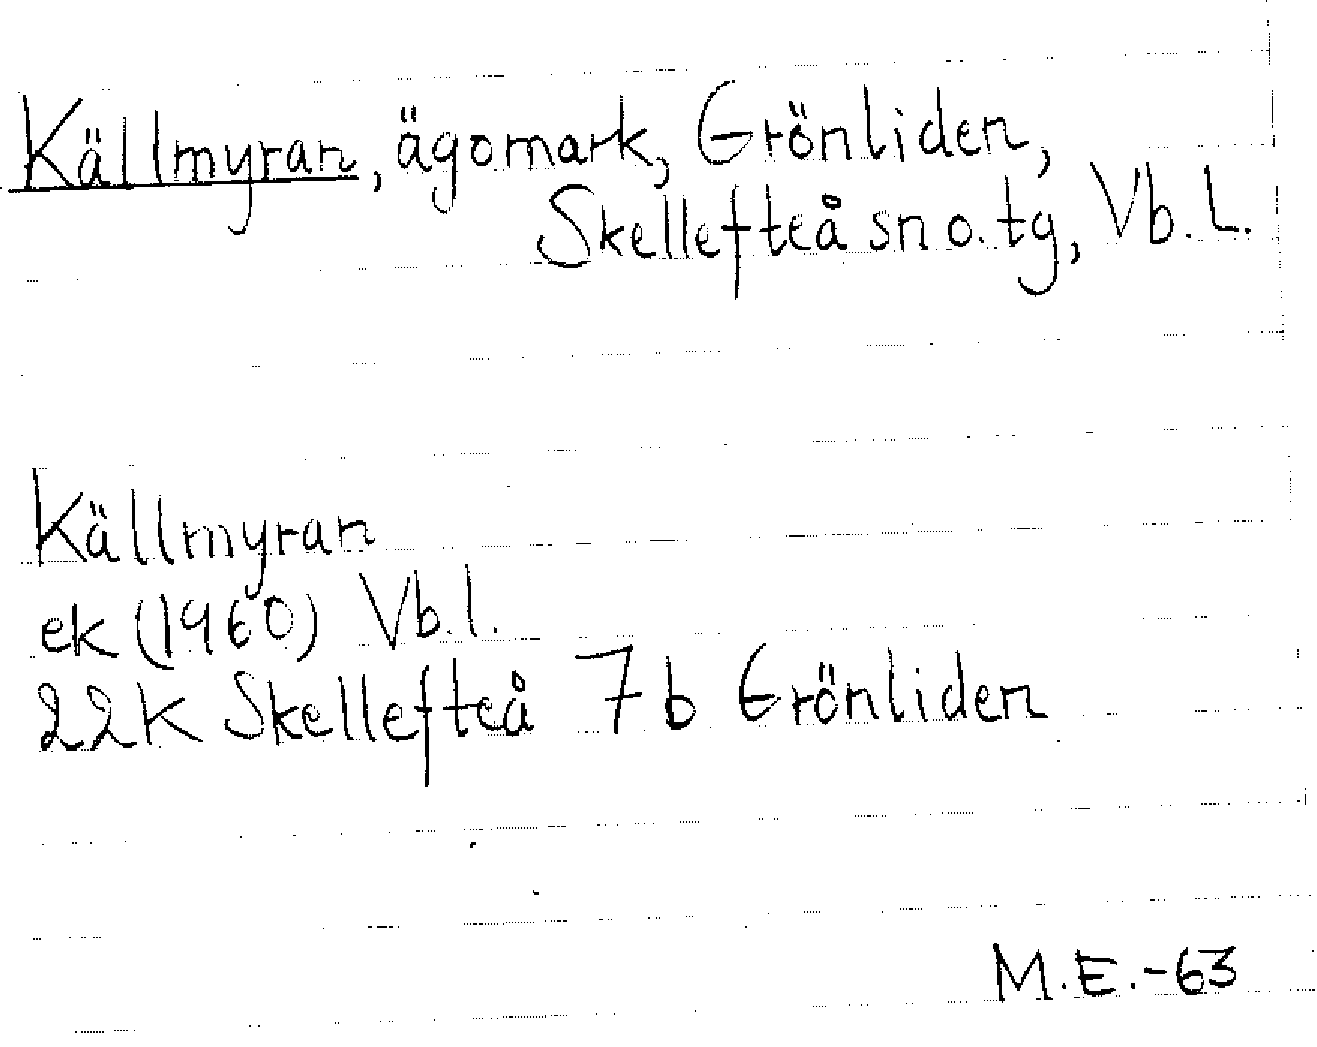 Källmyran, ägomark, Grönliden,
Skellefteå sn o. tg, Vb. L.
Källmyran
ek (1960) Vb. l.
22K Skellefteå 7b Grönliden
M.E.-63